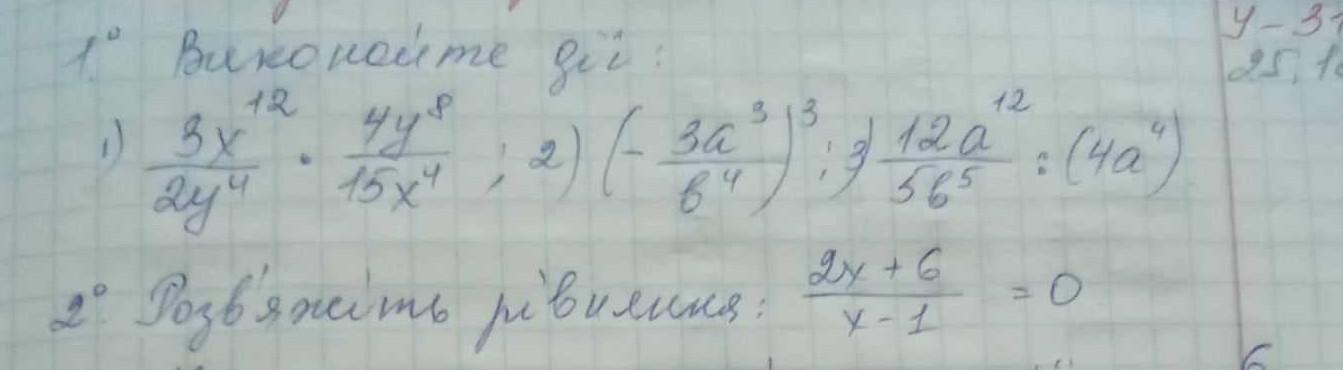 1.° Виконайте дії:
1) 3x¹²/2y⁴ · 4y⁸/15x⁴ ; 2) (- 3a³/b⁴)³ ; 3) 12a¹²/5b⁵ : (4a⁴)
2° Розв'яжіть рівняння: 2x+6/x-1 = 0